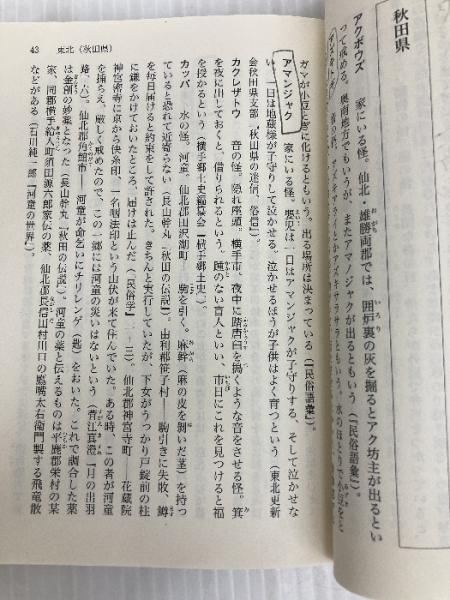 秋田県
アクボウズ　家にいる怪。仙北、雄勝両郡では、囲炉裏の灰を掘るとアク坊主が出るとい
って戒める。奥南地方でもいうが、またアマノジャクが出るともいう（『民俗語彙』）。
ガマが小豆とぎに化けるともいう。出る場所は決まっている（『民俗語彙』）。
アマンジャク　家にいる怪。嬰児は一日はアマンジャクが子守りする、そして泣かせな
い、一日は地蔵様が子守りして泣かせる。泣かせるほうが子供はよく育つという（東北更新
会秋田県支部『秋田県の迷信、俗信』）。
カクレザトウ　音の怪。隠れ座頭。横手市、夜中に踏唐臼を搗くような音をさせる怪。箕
を夜に出しておくと、借りられるという。踵のない盲人といい、市日にこれを見つけると福
を授かるという（横手郷土史編纂会『横手郷土史』）。
カッパ　水の怪。河童。仙北郡田沢湖町――駒を引く。麻幹（麻の皮を剝いだ茎）を持つ
ていると恐れて近寄らない（長山幹丸『秋田の伝説』）。由利郡笹子村――駒引きに失敗、鱒
を毎日届けると約束をして許された。きちんと実行していたが、下女がうっかり戸錠前の柱
に鎌をかけておいたところ、届けは止んだ（『民俗学』一-三）。仙北郡神宮寺町――花蔵院
神宮密寺に京から快糸印、一名唱法印という山伏が来て住んでいた。ある時、この者が河童
を捕らえ、厳しく戒めたので、この一郷には河童の災いはないという（菅江真澄『月の出羽
路』六）。仙北郡角館市――河童が命乞いにチリレンゲ（匙）をおいた。これで調合した薬
は金創の妙薬となった（長山幹丸『秋田の伝説』）。河童の薬と伝えるものは平鹿郡栄村の某
路、同郡横手給人町須田源六郎家伝の薬、仙北郡長信田村川口の鷹嘴太右衛門製する飛竜散
などがある（石川純一郎『河童の世界』）。
43　東北（秋田県）